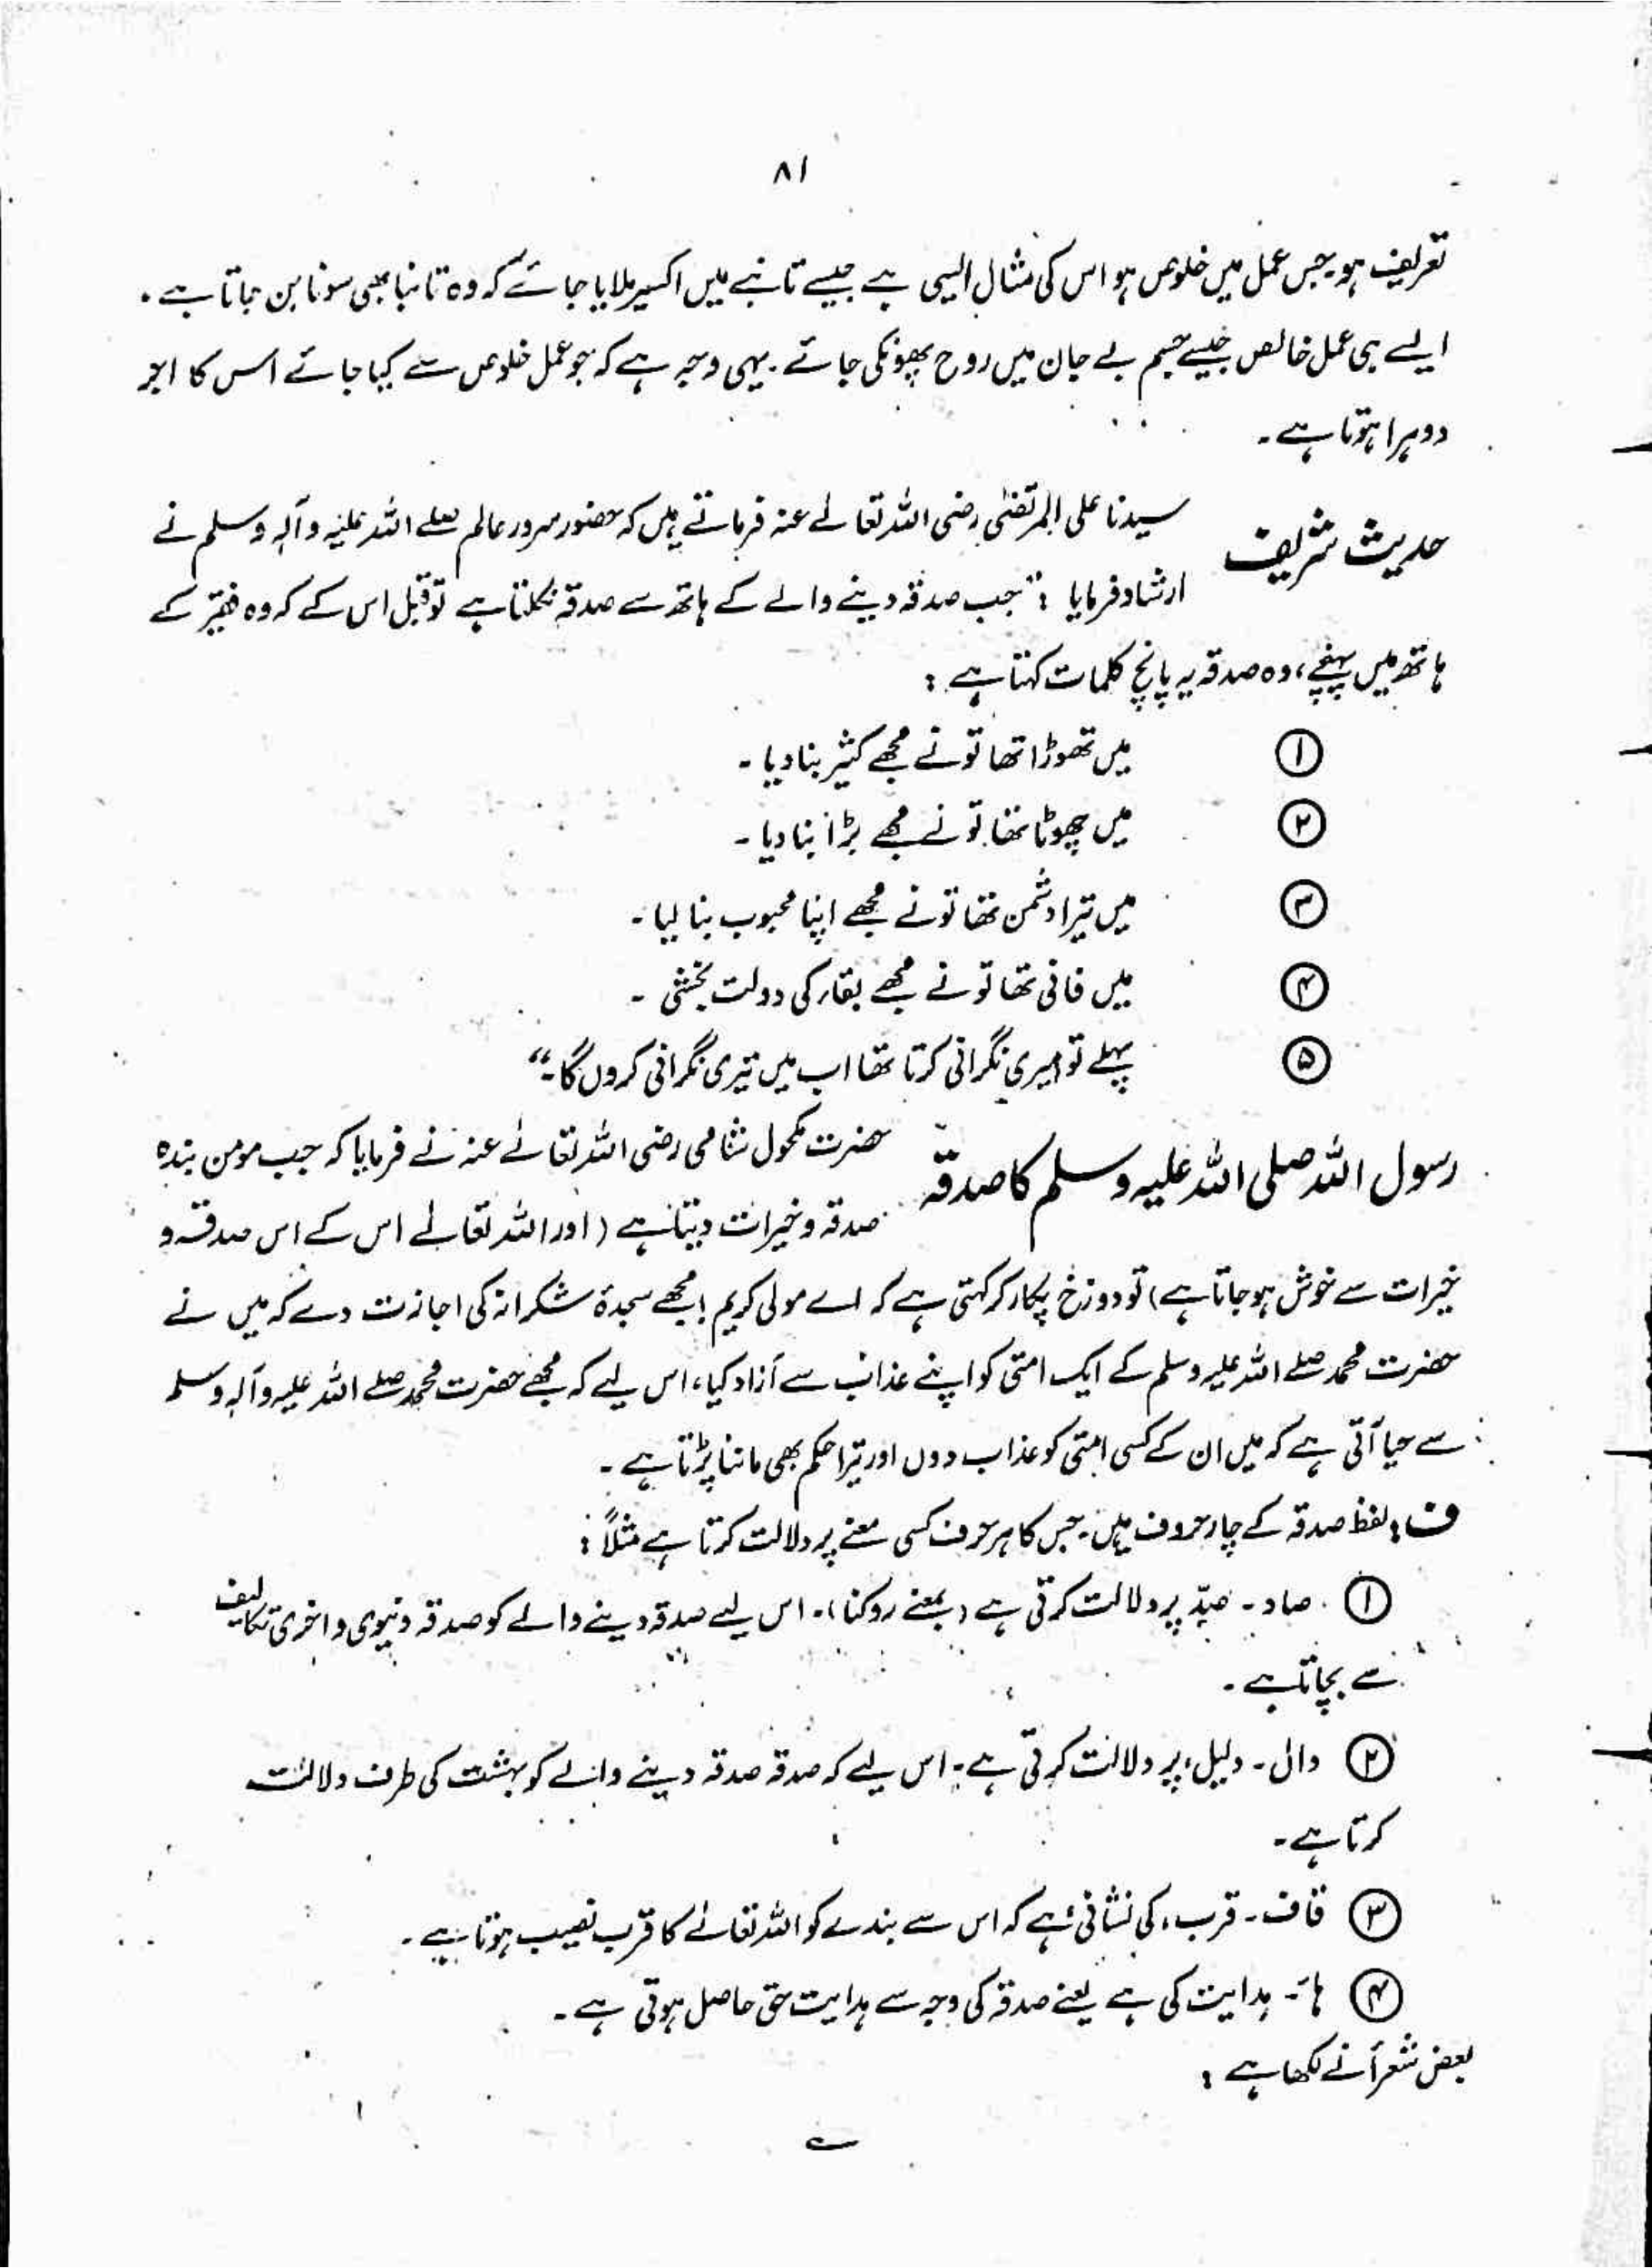 ۸۱
تعریف ہو۔ جس عمل میں خلوص ہو اس کی مثال ایسی ہے جیسے تانبے میں اکسیر ملایا جائے کہ وہ تانبا بھی سونا بن جاتا ہے۔
ایسے ہی عمل خالص جیسے جسم بے جان میں روح پھونکی جائے۔ یہی وجہ ہے کہ جو عمل خلوص سے کیا جائے اس کا اجر
دوہرا ہوتا ہے۔
حدیث شریف سیدنا علی المرتضیٰ رضی اللہ تعالےٰ عنہ فرماتے ہیں کہ حضور سرور عالم صلے اللہ علیہ وآلہٖ وسلم نے
ارشاد فرمایا : "جب صدقہ دینے والے کے ہاتھ سے صدقہ نکلتا ہے تو قبل اس کے کہ وہ فقیر کے
ہاتھ میں پہنچے، وہ صدقہ یہ پانچ کلمات کہتا ہے :
① میں تھوڑا تھا تو نے مجھے کثیر بنا دیا۔
② میں چھوٹا تھا تو نے مجھے بڑا بنا دیا۔
③ میں تیرا دشمن تھا تو نے مجھے اپنا محبوب بنا لیا۔
④ میں فانی تھا تو نے مجھے بقاء کی دولت بخشی۔
⑤ پہلے تو میری نگرانی کرتا تھا اب میں تیری نگرانی کروں گا۔"
رسول اللہ صلی اللہ علیہ وسلم کا صدقہ حضرت مکحول شامی رضی اللہ تعالےٰ عنہ نے فرمایا کہ جب مومن بندہ
صدقہ و خیرات دیتا ہے (اور اللہ تعالےٰ اس کے اس صدقہ و
خیرات سے خوش ہو جاتا ہے) تو دوزخ پکار کر کہتی ہے کہ اے مولیٰ کریم! مجھے سجدۂ شکرانہ کی اجازت دے کہ میں نے
حضرت محمد صلے اللہ علیہ وسلم کے ایک امتی کو اپنے عذاب سے آزاد کیا، اس لیے کہ مجھے حضرت محمد صلے اللہ علیہ وآلہٖ وسلم
سے حیا آتی ہے کہ میں ان کے کسی امتی کو عذاب دوں اور تیرا حکم بھی ماننا پڑتا ہے۔
ف : لفظ صدقہ کے چار حروف ہیں۔ جس کا ہر حرف کسی معنے پر دلالت کرتا ہے مثلاً :
① صاد۔ صدّ پر دلالت کرتی ہے (بمعنے روکنا)۔ اس لیے صدقہ دینے والے کو صدقہ دنیوی و اخری تکالیف
سے بچاتا ہے۔
② دال۔ دلیل، پر دلالت کرتی ہے۔ اس لیے کہ صدقہ صدقہ دینے والے کو بہشت کی طرف دلالت
کرتا ہے۔
③ قاف۔ قرب، کی نشانی ہے کہ اس سے بندے کو اللہ تعالےٰ کا قرب نصیب ہوتا ہے۔
④ ہاَ۔ ہدایت کی ہے یعنے صدقہ کی وجہ سے ہدایت حق حاصل ہوتی ہے۔
بعض شعرأ نے لکھا ہے :